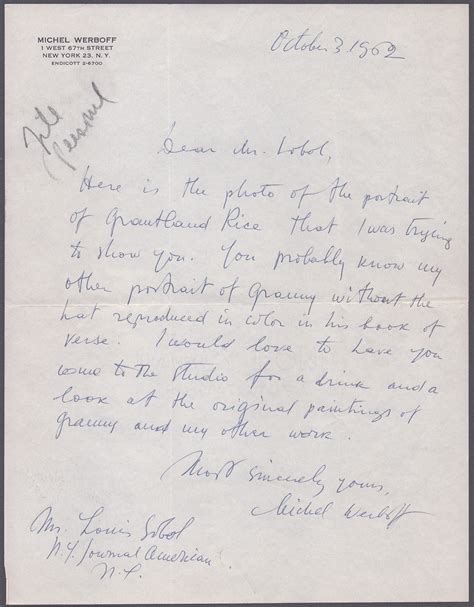 MICHEL WERBOFF
1 WEST 67TH STREET
NEW YORK 23, N. Y.
ENDICOTT 2-6700
October 3, 1962
File
personal
Dear Mr. Sobol,
Here is the photo of the portrait
of Grantland Rice that I was trying
to show you. You probably know my
other portrait of Granny without the
hat reproduced in color in his book of
verse. I would love to have you
come to the studio for a drink and a
look at the original paintings of
Granny and my other work.
Most sincerely yours,
Michel Werboff
Mr. Louis Sobol
N.Y. Journal American
N.Y.